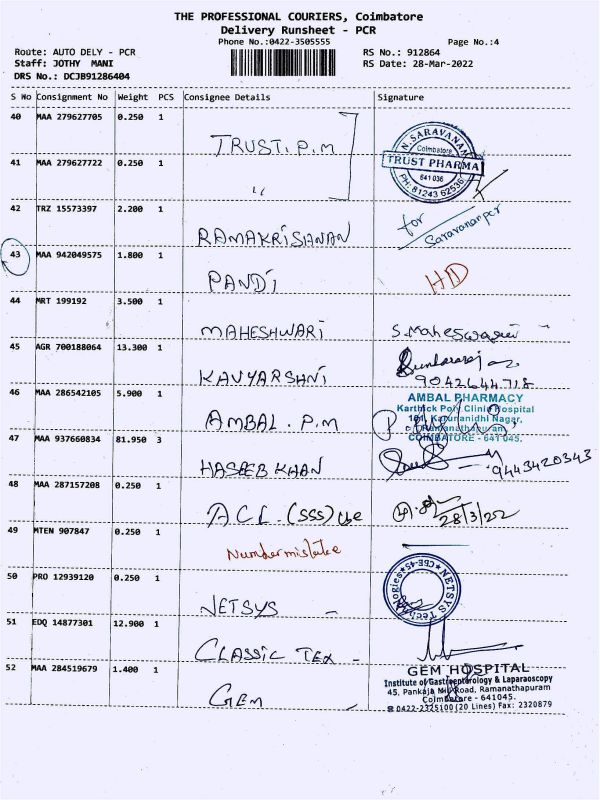 THE PROFESSIONAL COURIERS, Coimbatore
Delivery Runsheet - PCR
Phone No.:0422-3505555
Page No.:4
Route: AUTO DELY - PCR
RS No.: 912864
Staff: JOTHY MANI
RS Date: 28-Mar-2022
DRS No.: DCJB91286404
S No Consignment No Weight PCS Consignee Details Signature
40 MAA 279627705 0.250 1
TRUST. P.M
N.SARAVANAN
Coimbatore
TRUST PHARMA
641 036
PH: 81243 62536
41 MAA 279627722 0.250 1
"
42 TRZ 15573397 2.200 1
RAMAKRISHNAN
for
43 MAA 942049575 1.800 1
PANDI
HD
44 MRT 199192 3.500 1
MAHESHWARI
S. Maheswari
45 AGR 700188064 13.300 1
KAVYARSHNI
9042644718
46 MAA 286542105 5.900 1
AMBAL . P.M
AMBAL PHARMACY
Karthick Poly Clinic Hospital
Karunanidhi Nagar,
Ramanathapuram
COIMBATORE - 641 045.
47 MAA 937660834 81.950 3
HASEEB KHAN
9443420343
48 MAA 287157208 0.250 1
ACL . (SSS) cbe
49 MTEN 907847 0.250 1
Number mistake
50 PRO 12939120 0.250 1
NETSYS -
NETSYS Technologies
CBE-45
51 EDQ 14877301 12.900 1
CLASSIC TEX -
52 MAA 284519679 1.400 1
GEM
GEM HOSPITAL
Institute of Gastroenterology & Laparaoscopy
45, Pankaja Mill Road, Ramanathapuram
Coimbatore - 641045.
0422-2325100 (20 Lines) Fax: 2320879